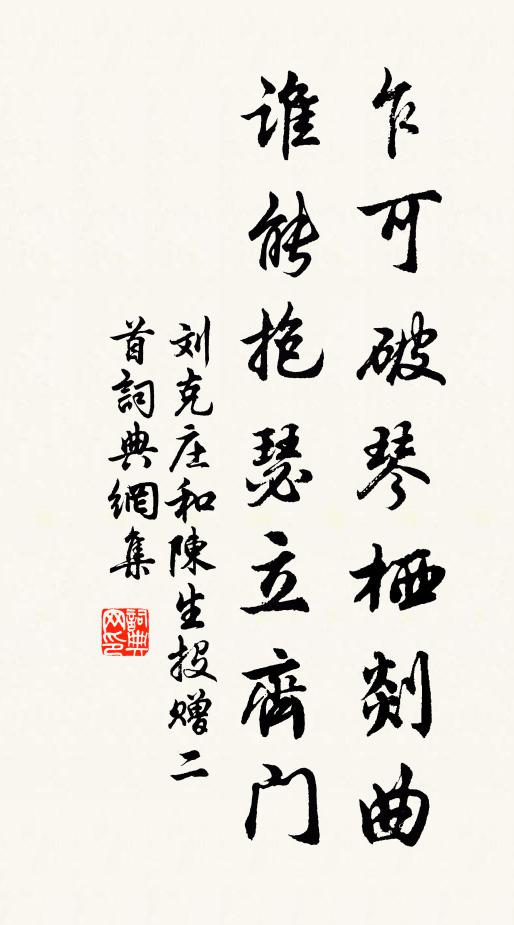 乍可破琴栖剡曲
谁能抱瑟立齊门
刘克庄和陳生投赠二
首詞典網集
詞典网印